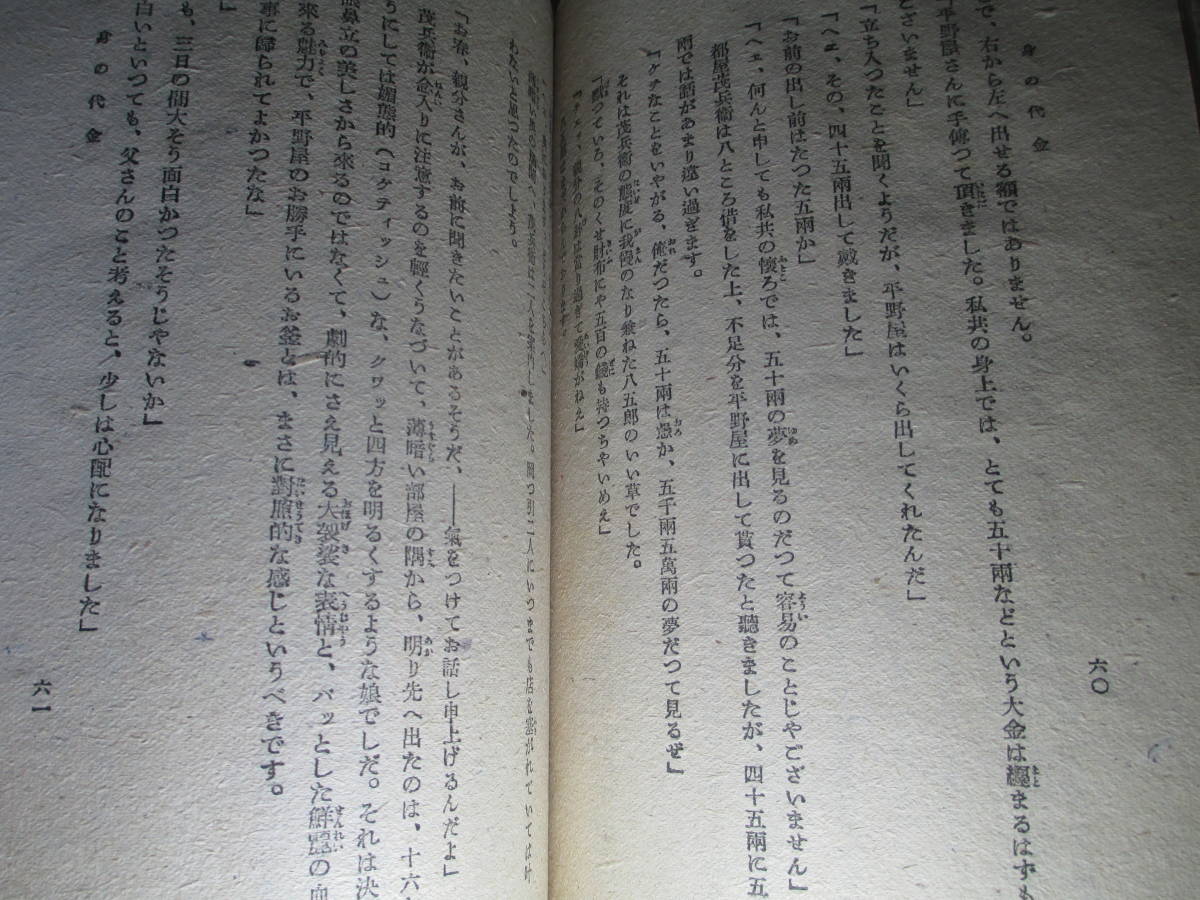 身の代金
で、右から左へ出せる額ではありません。
平野屋さんに手傅つて頂きました。私共の身上では、とても五十兩などという大金は纒まるはずも
ございません」
「立ち入つたことを聞くようだが、平野屋はいくら出してくれたんだ」
「ヘエ、その、四十五兩出して戴きました」
「お前の出し前はたつた五兩か」
「ヘエ、何んと申しても私共の懷ろでは、五十兩の夢を見るのだつて容易のことじやございません」
都屋茂兵衞は八ところ借をした上、不足分を平野屋に出して貰つたと聽きましたが、四十五兩に五
兩では話があまり遠い過ぎます。
「ケチなことをいやがる、俺だつたら、五十兩は愚か、五千兩五萬兩の夢だつて見るぜ」
それは茂兵衞の態度に我慢のなり兼ねた八五郎のいい草でした。
「默つていろ、そのくせ財布にや五百の錢も持つちやいめえ」
六〇
わないと思つたのでしよう。
「お春、親分さんが、お前に聞きたいことがあるそうだ、――氣をつけてお話し申上げるんだよ」
茂兵衞が念入りに注意するのを輕くうなづいて、薄暗い部屋の隅から、明り先へ出たのは、十六
うにしては媚態的(コケティッシュ)な、クワッと四方を明るくするような娘でしだ。それは決
眼鼻立の美しさから來るのではなくて、劇的にさえ見える大袈裟な表情と、パッとした鮮麗の血
來る魅力で、平野屋のお勝手にいるお釜とは、まさに對照的な感じというべきです。
事に歸られてよかつたな」
」
も、三日の間大そう面白かつたそうじやないか」
白いといつても、父さんのこと考えると、少しは心配になりました」
身の代金
六一